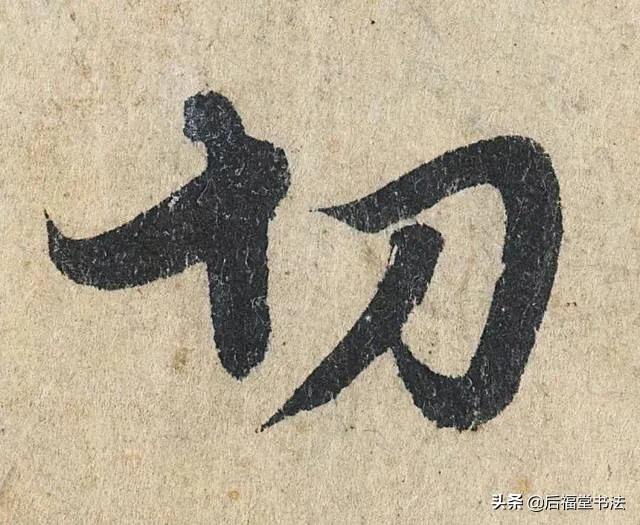 切
头条 @后福堂书法